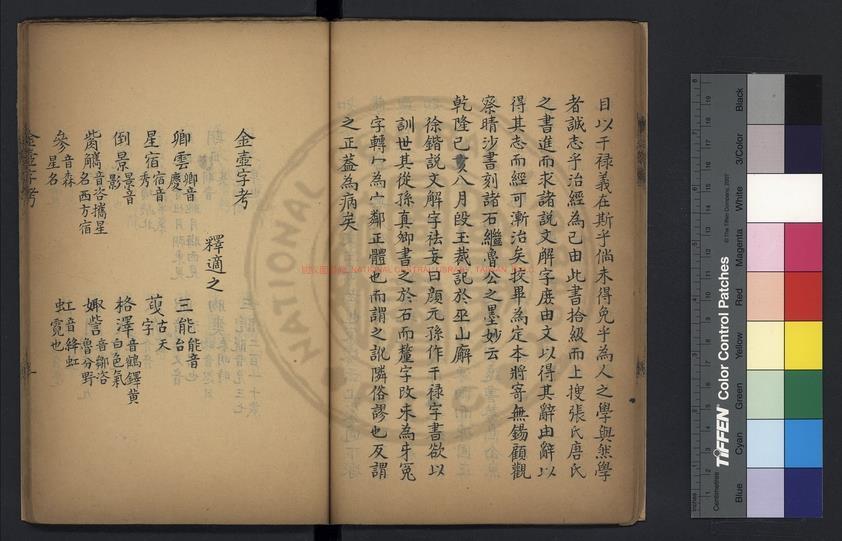 目以干祿義在斯乎倘未得免乎為人之學與然學
者誠志乎治經為己由此書拾級而上搜張氏唐氏
之書進而求諸說文解字庶由文以得其辭由辭以
得其志而經可漸治矣挍畢為定本將寄無錫顧觀
察晴沙書刻諸石繼魯公之墨妙云
乾隆己亥八月段玉裁記於巫山廨
徐鍇說文解字祛妄曰顏元孫作干祿字書欲以
訓世其從孫真卿書之於石而釐字改未為牙冤
字轉冖為宀鄰正體也而謂之訛隣俗謬也反謂
之正葢為病矣
金壺字考
釋適之
卿雲 卿音慶
三能 能音台
星宿 宿音秀
昊天 古天字
倒景 景音影
格澤 音鶴鐸黄白色氣
觜觿 音咨攜星名西方宿
娵訾 音鄒咨魯分野
參 音森星名
虹 音絳虹霓也
金壺字考
NATIONAL CENTRAL LIBRARY, TAIWAN, R.O.C
TIFFEN Color Control Patches
© The Tiffen Company, 2007
Blue
Cyan
Green
Yellow
Red
Magenta
White
3/Color
Black
Inches
Centimetres